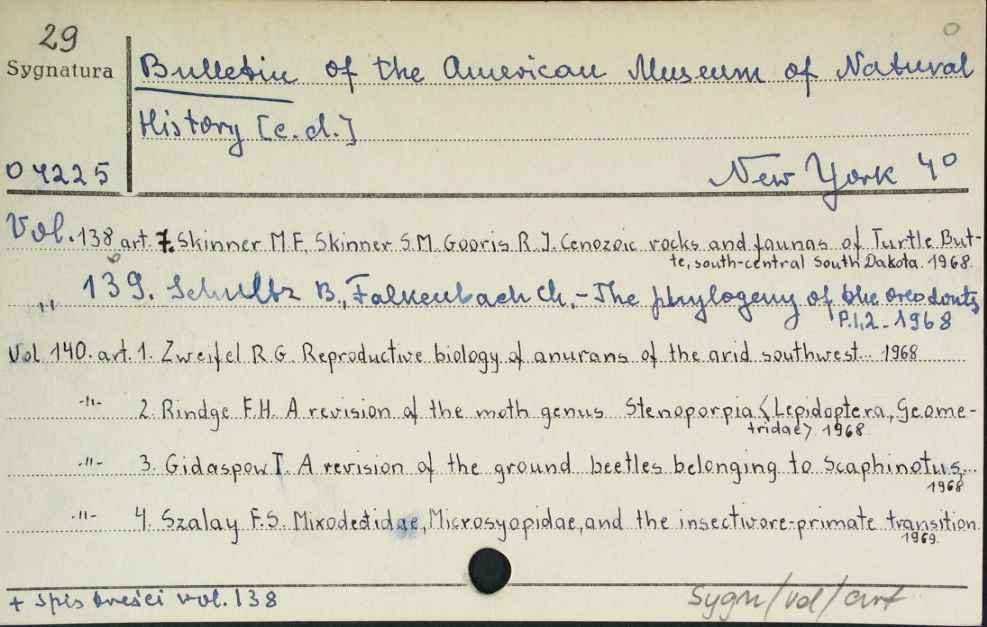 29
Sygnatura
04225
Bulletin of the American Museum of Natural
History [c.d.]
New York 4°
Vol. 138 art. 7. Skinner M.F., Skinner S.M. Gooris R.J. Cenozoic rocks and faunas of Turtle But-
te, south-central South Dakota. 1968.
-"- 139. Schultz B., Falkenbach Ch. - The phylogeny of the oreodonts
P.1,2 - 1968
Vol. 140. art. 1. Zweifel R.G. Reproductive biology of anurans of the arid southwest... 1968
-"- 2. Rindge F.H. A revision of the moth genus Stenoporpia <Lepidoptera, Geome-
tridae> 1968
-"- 3. Gidaspow T. A revision of the ground beetles belonging to Scaphinotus,...
1968
-"- 4. Szalay F.S. Mixodectidae, Microsyopidae, and the insectivore-primate transition
1969.
+ spis treści vol. 138
Sygn/vol/art